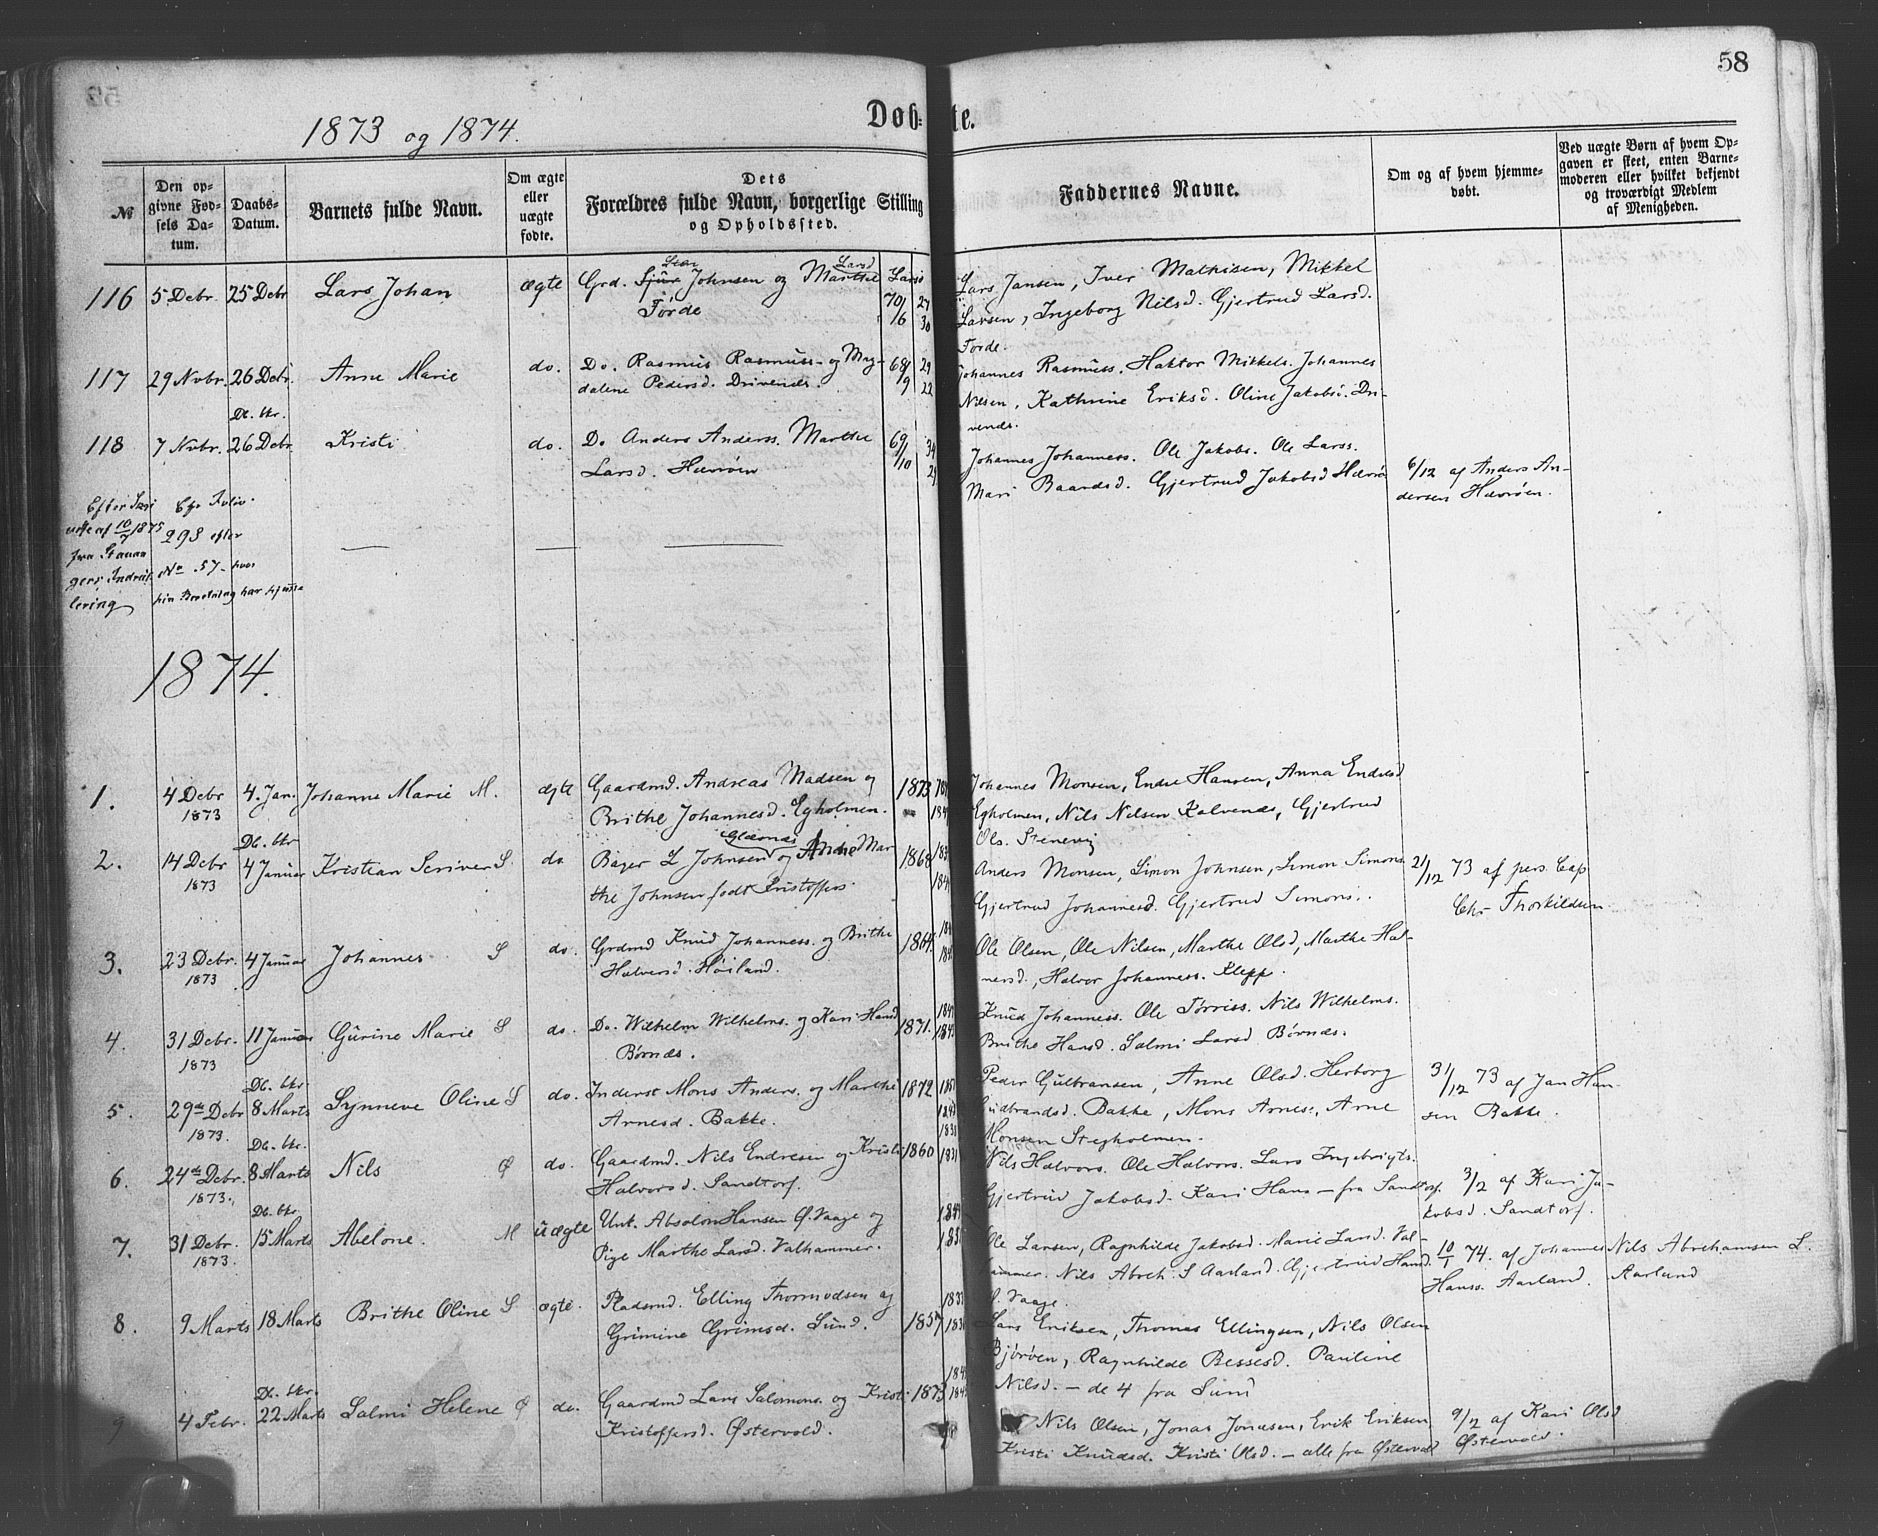 58
1873 og 1874.
Døb=te.
№
Den op-
givne Fød-
sels Da-
tum.
Daabs-
Datum.
Barnets fulde Navn.
Om ægte
eller
uægte
fødte.
Dets
Forældres fulde Navn, borgerlige Stilling
og Opholdssted.
Faddernes Navne.
Om og af hvem hjemme-
døbt.
Ved uægte Børn af hvem Op-
gaven er skeet, enten Barne-
moderen eller hvilket bekjendt
og troværdigt Medlem
af Menigheden.
116 5 Debr. 25 Debr Lars Johan ægte Grd. Johnsen og Marthe Lars
Førde 70/16 27 30
Lars Jansen, Iver Mathisen, Mikkel
Larsen, Ingeborg Nilsd. Gjertrud Larsd.
Førde.
117 29 Nvbr. 26 Debr. Anne Marie do. Do. Rasmus Rasmuss. og Mag-
dalene Pedersd. Drivenes. 68/9 29 22
Johannes Rasmuss. Haktor Mikkels. Johannes
Nilsen, Kathrine Eriksd. Oline Jakobsd. Dri-
venes.
Db. bkr.
118 7 Nvbr. 26 Debr Kristi do. Do Anders Anderss. Marthe
Larsd. Havrøen 69/10 34 29
Johannes Johanness. Ole Jakobs. Ole Larss.
Mari Baardsd. Gjertrud Jakobsd Havrø
6/12 af Anders An-
dersen Havrøen.
af 10/7 1875
fra
298 efter
No. 57. hvor
har
1874.
1. 4 Debr 1873 4. Jan. Johanne Marie M. ægte Gaardmd. Andreas Madsen og
Brithe Johannesd. Egholmen. 1873
Johannes Monsen, Endre Hansen, Anna Endresd
Egholmen, Nils Nilsen Kalvenes, Gjertrud
Ols. Stenevig
Db. bkr
2. 14 Debr 1873 4 Januar Kristian Scriver S. do Bager L Johnsen og Anne Mar
the Johnsen født Kristoffers. 1868
Glesnæs
Anders Monsen, Simon Johnsen, Simon Simons.
Gjertrud Johannesd. Gjertrud Simons.
21/12 73 af pers. Cap
Chr Thorkildsen
3. 23 Debr. 1873 4 Januar Johannes S do. Grdmd Knud Johanness. og Brithe
Halversd. Høiland. 1864.
Ole Olsen, Ole Nilsen, Marthe Olsd, Marthe Hal-
versd., Halvor Johanness. Klepp.
4. 31 Debr. 1873 11 Januar Gurine Marie S do. Do. Wilhelm Wilhelms. og Kari Hansd
Børnæs. 1871.
Knud Johanness. Ole Tørriss. Nils Wilhelms.
Brithe Hansd. Salmi Larsd Børnæs.
Db. bkr
5. 29de Debr 1873. 8 Marts Synneve Oline S do. Inderst Mons Anders. og Marthe
Arnesd. Bakke. 1872
Peder Gulbransen, Anne Olsd. Herborg
Gudbrandsd. Bakke, Mons Arnes., Arne
Monsen Stegholmen.
31/12 73 af Jan Han-
sen Bakke.
Db. bkr.
6. 24de Debr 1873. 8 Marts Nils Ø do. Gaardmd. Nils Endresen og Kristi
Halvorsd. Sandtorf. 1860 1831
Nils Halvors. Ole Halvors. Lars Ingebrigts.
Gjertrud Jakobsd. Kari Hans — fra Sandtorf.
3/2 af Kari Ja-
kobsd. Sandtorf.
Db. bkr.
7. 31 Debr. 1873. 15 Marts Abelone. M uægte Unt. Absolon Hansen Ø. Vaage og
Pige Marthe Larsd. Valhammer.
Ole Larsen, Ragnhilde Jakobsd. Marie Larsd. Val-
hammer. Nils Abreh. S Aarland. Gjertrud Hansd.
Ø. Vaage.
10/1 74. af Johannes
Hanss. Aarland.
Nils Abrehamsen L.
Aarland
8. 9 Marts 18 Marts Brithe Oline S ægte. Pladsmd. Elling Thormodsen og
Grimine Grimsd. Sund. 1857
Lars Eriksen, Thomes Ellingsen, Nils Olsen
Bjørøen, Ragnhilde Bessesd. Pauline
Nilsd. — de 4 fra Sund
Db. bkr.
9 4 Febr. 22 Marts Salmi Helene Ø do. Gaardmd Lars Salomons. og Kristi
Kristoffersd. Østervold. 1873
Nils Olsen, Jonas Jonasen, Erik Eriksen
Kristi Knudsd. Kristi Olsd. — alle fra Østervold
9/2 af Kari Olsd
Østervold.